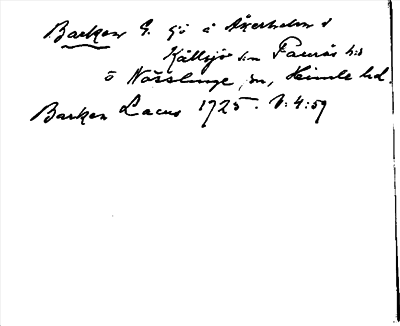 Barken G. sjö å Åkerholm i
Källsjö sn Faurås hd
o Nösslinge sn, Himle hd.
Barken Lacus 1725. V:4:59